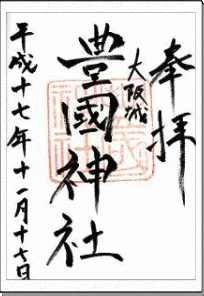 奉拝
大阪城
豊國神社
平成十七年十一月十七日